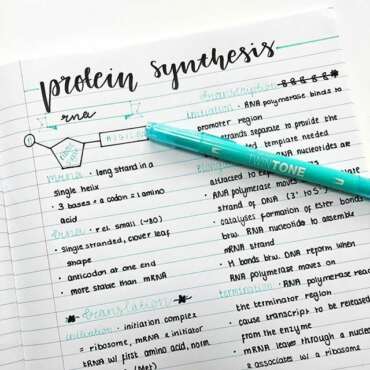 protein synthesis
rna
mRNA • long strand in a
single helix
• 3 bases = a codon = 1 amino
acid
tRNA • rel. small (~80)
• single stranded, clover leaf
shape
• anticodon at one end
• more stable than mRNA
translation
initiation • initiation complex
= ribosome, mRNA & initiator
tRNA w/ first amino acid, norm
(Met)
transcription
initiation • RNA polymerase binds to
promoter region
strands separate to provide the
template needed
TWINTONE
nucleotides are
attracted to
• RNA polymerase moves
strand of DNA (3' to 5')
• catalyses formation of ester bonds
btw. RNA nucleotides to assemble
mRNA strand
• H bonds btw. DNA reform when
RNA polymerase moves on
termination • RNA polymerase reac
the terminator region
• cause transcript to be released
from the enzyme
• mRNA leaves through a nucle
& associates w/ a ribosome